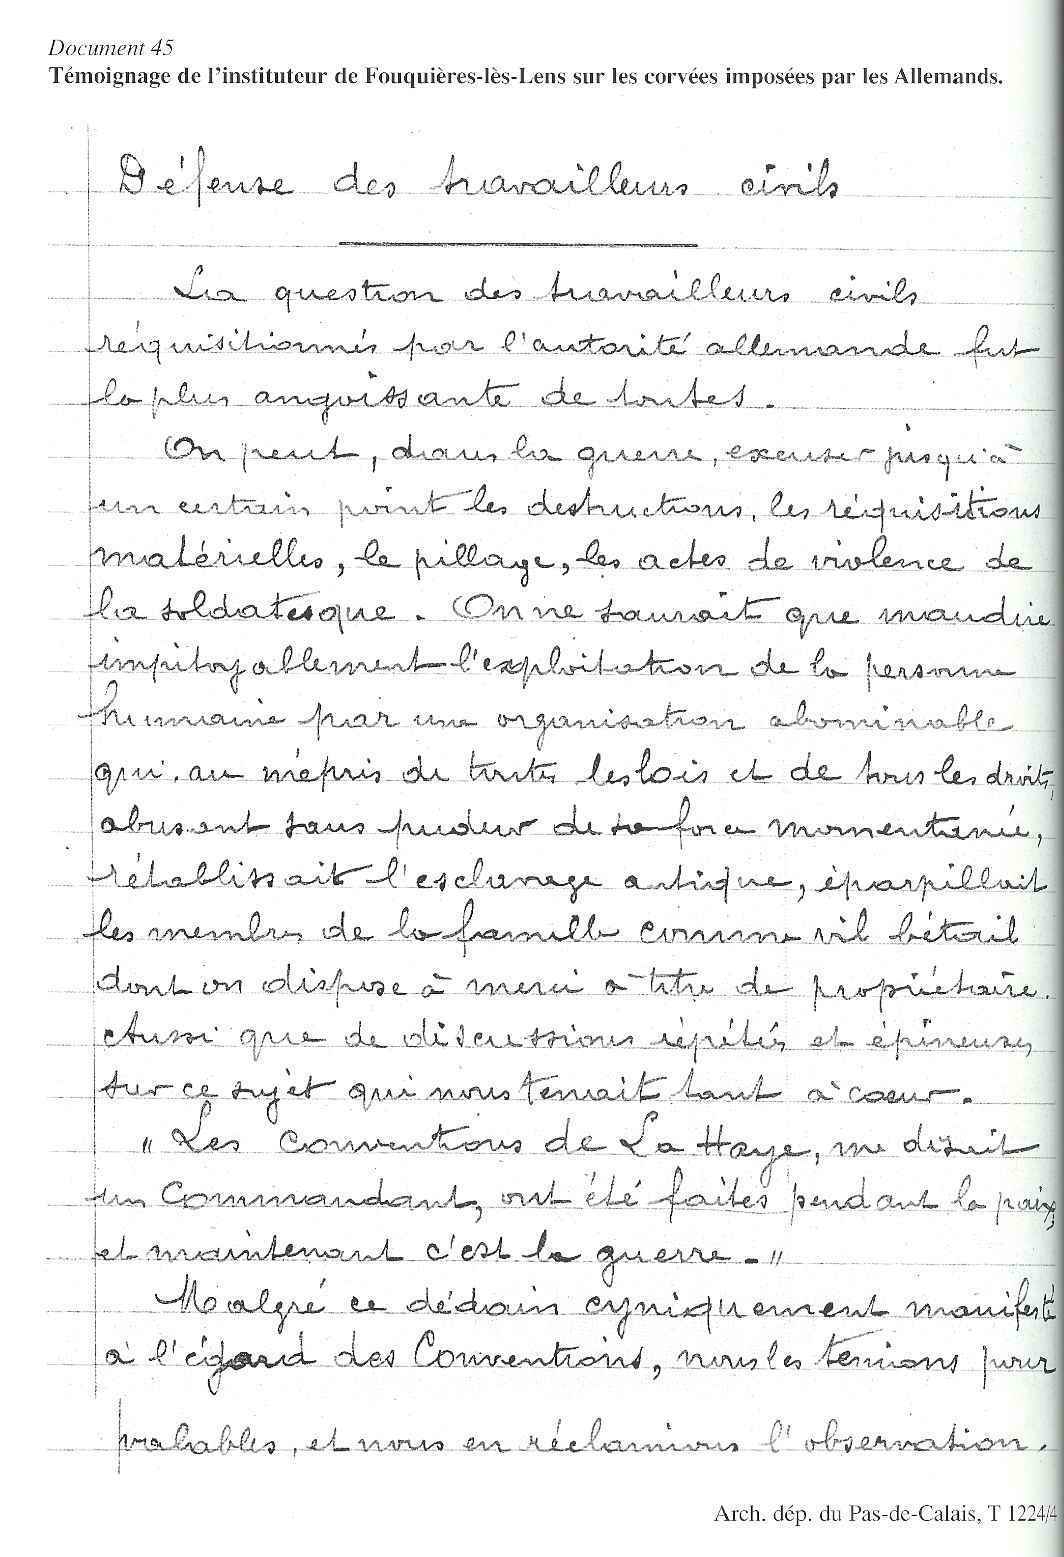 Document 45
Témoignage de l'instituteur de Fouquières-lès-Lens sur les corvées imposées par les Allemands.
Défense des travailleurs civils
La question des travailleurs civils
réquisitionnés par l'autorité allemande fut
la plus angoissante de toutes.
On peut, dans la guerre, excuser jusqu'à
un certain point les destructions, les réquisitions
matérielles, le pillage, les actes de violence de
la soldatesque. On ne saurait que maudire
impitoyablement l'exploitation de la personne
humaine par une organisation abominable
qui, au mépris de toutes les lois et de tous les droits,
abusant sans pudeur de sa force momentanée,
rétablissait l'esclavage antique, éparpillait
les membres de la famille comme vil bétail
dont on dispose à merci à titre de propriétaire.
Aussi que de discussions répétées et épineuses
sur ce sujet qui nous tenait tant à cœur.
"Les Conventions de La Haye, me disait
un Commandant, ont été faites pendant la paix,
et maintenant c'est la guerre."
Malgré ce dédain cyniquement manifesté
à l'égard des Conventions, nous les tenions pour
valables, et nous en réclamions l'observation.
Arch. dép. du Pas-de-Calais, T 1224/4